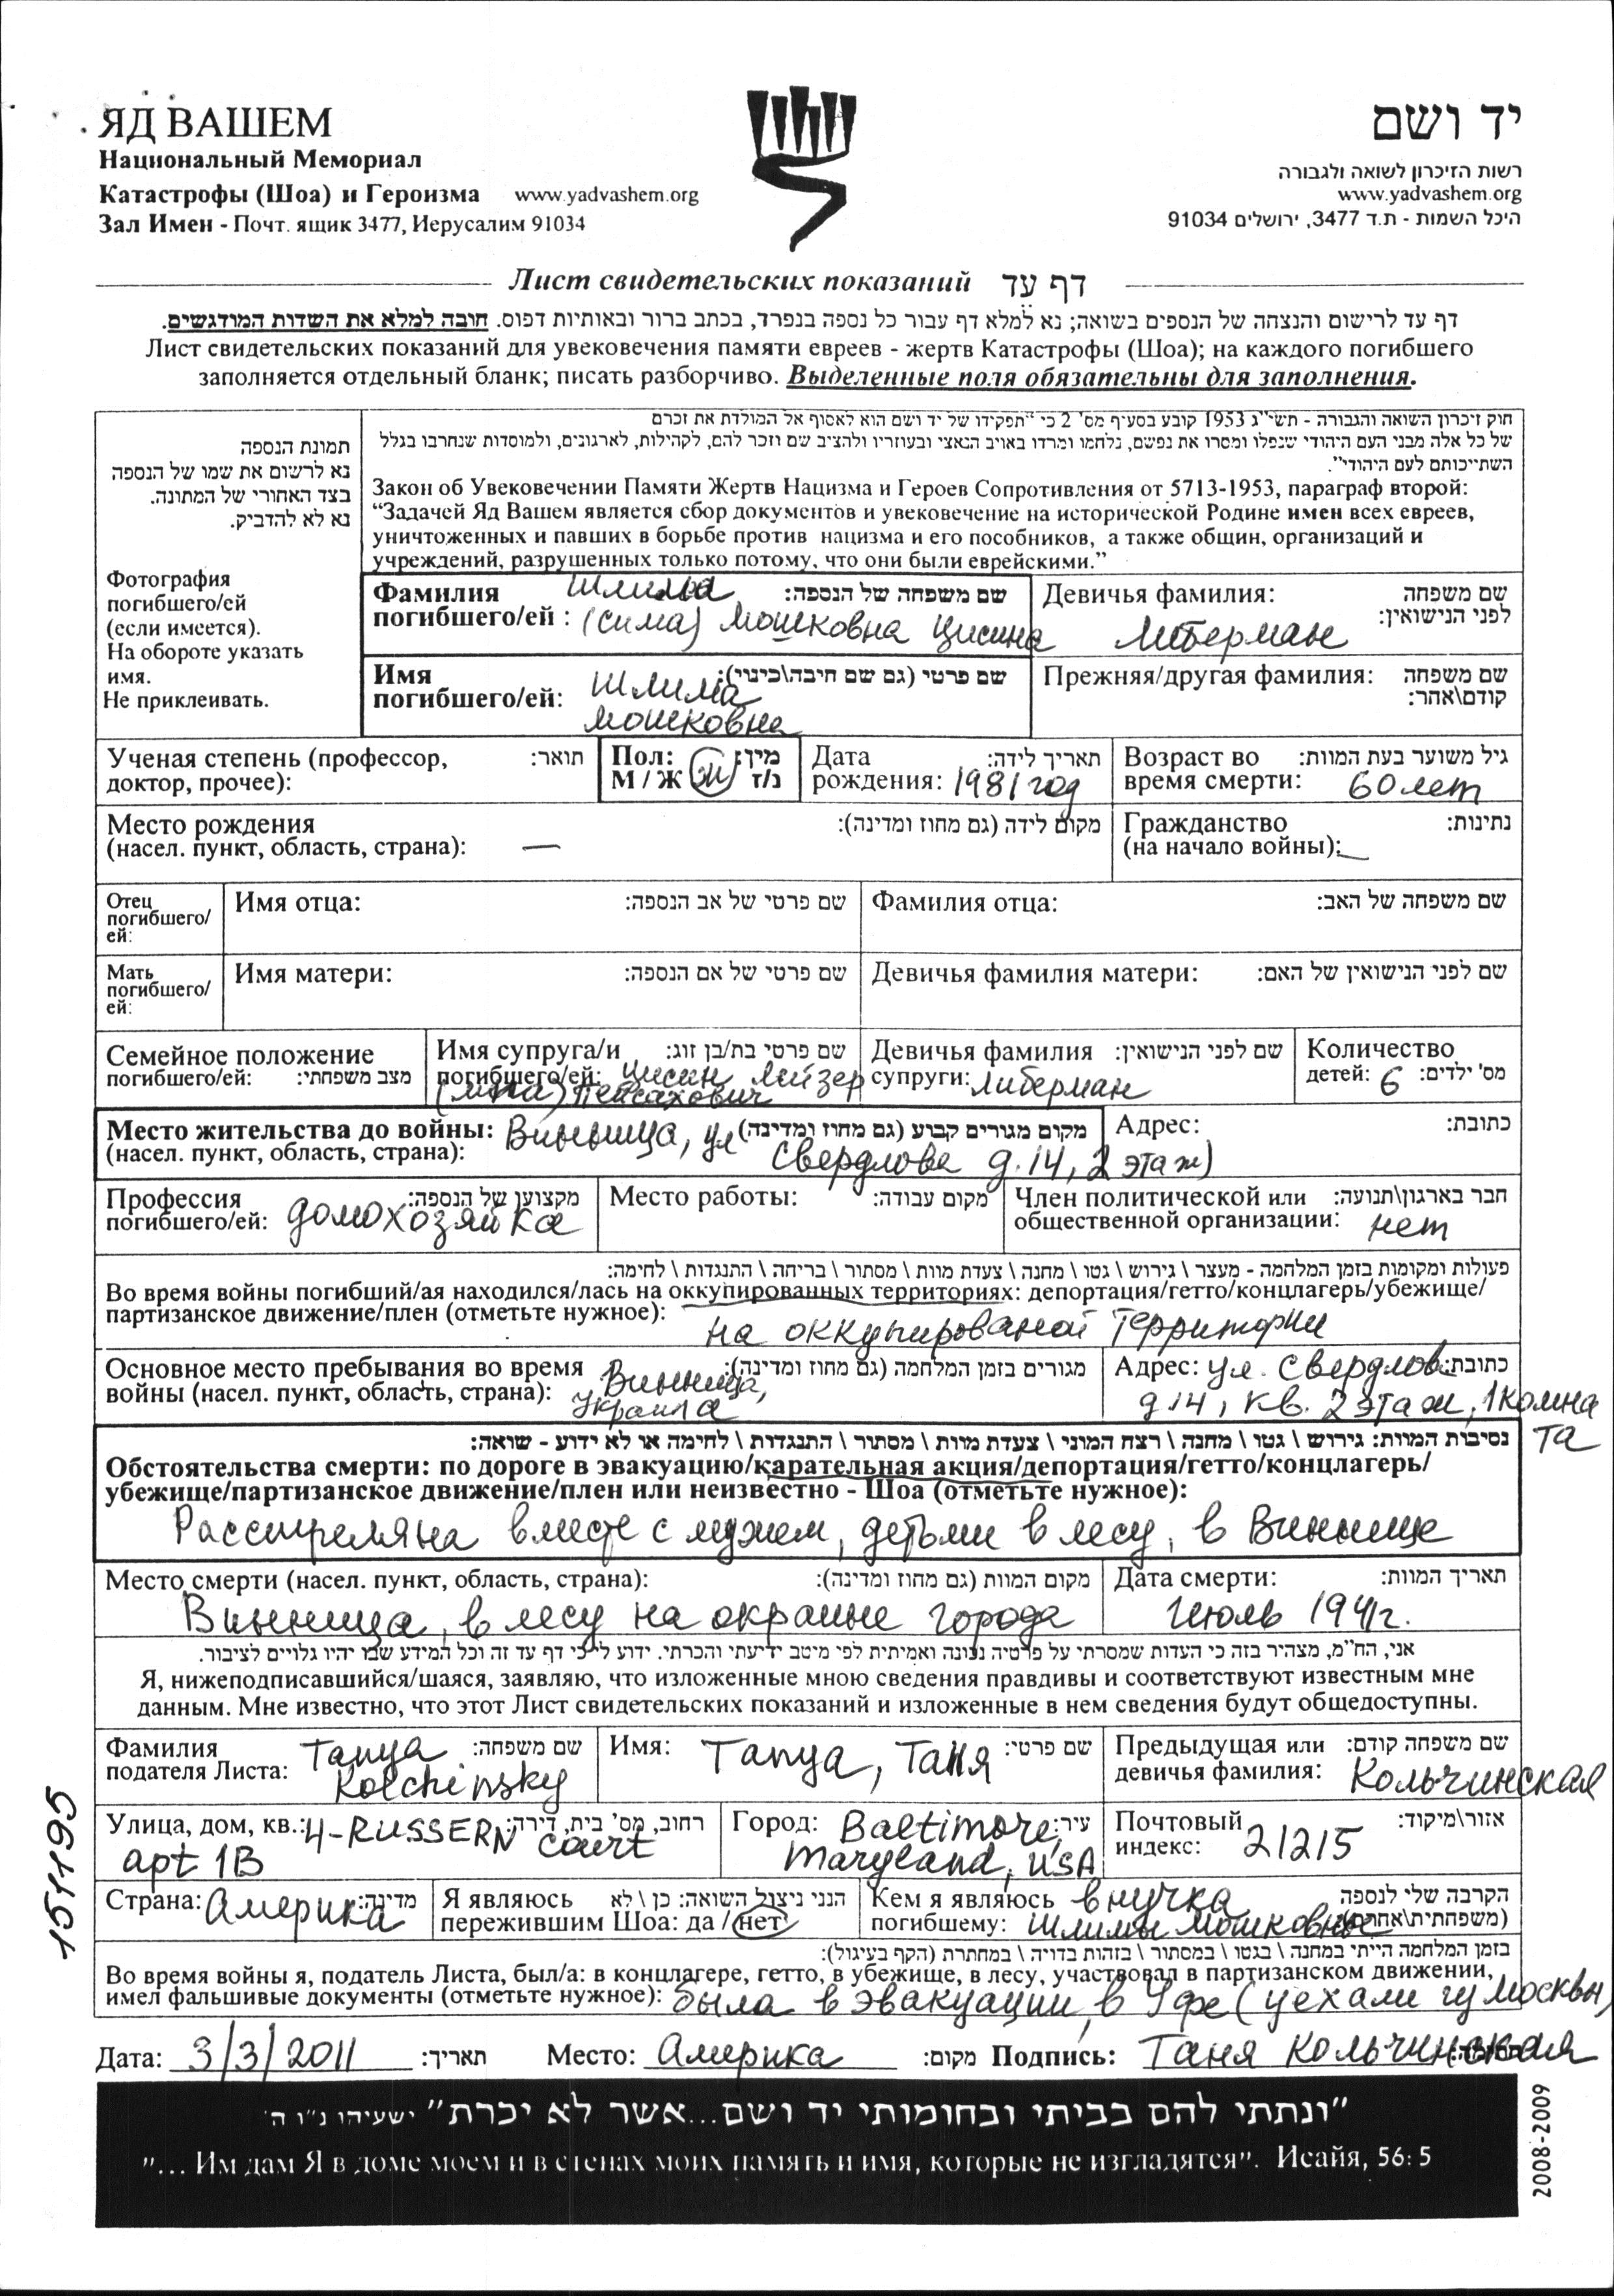 ЯД ВАШЕМ
Национальный Мемориал
Катастрофы (Шоа) и Героизма www.yadvashem.org
Зал Имен - Почт. ящик 3477, Иерусалим 91034
יד ושם
רשות הזיכרון לשואה ולגבורה
www.yadvashem.org
היכל השמות - ת.ד 3477, ירושלים 91034
Лист свидетельских показаний דף עד
דף עד לרישום והנצחה של הנספים בשואה; נא למלא דף עבור כל נספה בנפרד, בכתב ברור ובאותיות דפוס. חובה למלא את השדות המודגשים.
Лист свидетельских показаний для увековечения памяти евреев - жертв Катастрофы (Шоа); на каждого погибшего
заполняется отдельный бланк; писать разборчиво. Выделенные поля обязательны для заполнения.
תמונת הנספה
נא לרשום את שמו של הנספה
בצד האחורי של התמונה.
נא לא להדביק.
Фотография
погибшего/ей
(если имеется).
На обороте указать
имя.
Не приклеивать.
חוק זיכרון השואה והגבורה - תשי"ג 1953 קובע בסעיף מס' 2 כי "תפקידו של יד ושם הוא לאסוף אל המולדת את זכרם
של כל אלה מבני העם היהודי שנפלו ומסרו את נפשם, נלחמו ומרדו באויב הנאצי ובעוזריו ולהציב שם וזכר להם, לקהילות, לארגונים, ולמוסדות שנחרבו בגלל
השתייכותם לעם היהודי".
Закон об Увековечении Памяти Жертв Нацизма и Героев Сопротивления от 5713-1953, параграф второй:
“Задачей Яд Вашем является сбор документов и увековечение на исторической Родине имен всех евреев,
уничтоженных и павших в борьбе против нацизма и его пособников, а также общин, организаций и
учреждений, разрушенных только потому, что они были еврейскими.”
Фамилия Шлима שם משפחה של הנספה:
погибшего/ей : (Сима) Мошковна Цисина
Девичья фамилия: שם משפחה
לפני הנישואין:
Либерман
Имя שם פרטי (גם שם חיבה\כינוי):
погибшего/ей: Шлима
Мошковна
Прежняя/другая фамилия: שם משפחה
קודם\אחר:
Ученая степень (профессор, תואר:
доктор, прочее):
Пол: מין:
М / Ж ж ז/נ
Дата תאריך לידה:
рождения: 1981 год
Возраст во גיל משוער בעת המוות:
время смерти: 60 лет
Место рождения מקום לידה (גם מחוז ומדינה):
(насел. пункт, область, страна): —
Гражданство נתינות:
(на начало войны): —
Отец
погибшего/
ей:
Имя отца: שם פרטי של אב הנספה:
Фамилия отца: שם משפחה של האב:
Мать
погибшего/
ей:
Имя матери: שם פרטי של אם הנספה:
Девичья фамилия матери: שם לפני הנישואין של האם:
Семейное положение
погибшего/ей: מצב משפחתי:
Имя супруга/и שם פרטי בת/בן זוג:
погибшего/ей: Цисин Лейзер
Пейсахович
Девичья фамилия שם לפני הנישואין:
супруги: Либерман
Количество
детей: 6 מס' ילדים:
Место жительства до войны: Винница, ул מקום מגורים קבוע (גם מחוז ומדינה)
(насел. пункт, область, страна): Свердлова д.14, 2 этаж)
Адрес: כתובת:
Профессия מקצוען של הנספה:
погибшего/ей: домохозяйка
Место работы: מקום עבודה:
Член политической или חבר בארגון\תנועה:
общественной организации: нет
פעולות ומקומות בזמן המלחמה - מעצר \ גירוש \ גטו \ מחנה \ צעדת מוות \ מסתור \ בריחה \ התנגדות \ לחימה:
Во время войны погибший/ая находился/лась на оккупированных территориях: депортация/гетто/концлагерь/убежище/
партизанское движение/плен (отметьте нужное):
на оккупированой территории
Основное место пребывания во время מגורים בזמן המלחמה (גם מחוז ומדינה):
войны (насел. пункт, область, страна): Винница,
Украина
Адрес: ул. Свердлов כתובת:
д.14, кв. 2 этаж, 1 комна
та
נסיבות המוות: גירוש \ גטו \ מחנה \ רצח המוני \ צעדת מוות \ מסתור \ התנגדות \ לחימה או לא ידוע - שואה:
Обстоятельства смерти: по дороге в эвакуацию/карательная акция/депортация/гетто/концлагерь/
убежище/партизанское движение/плен или неизвестно - Шоа (отметьте нужное):
Расстреляна вместе с мужем, детьми в лесу, в Виннице
Место смерти (насел. пункт, область, страна): מקום המוות (גם מחוז ומדינה):
Винница, в лесу на окраине города
Дата смерти: תאריך המוות:
Июль 1941г.
אני, הח"מ, מצהיר בזה כי העדות שמסרתי על פרטיה נכונה ואמיתית לפי מיטב ידיעתי והכרתי. ידוע לי כי דף עד זה וכל המידע שבו יהיו גלויים לציבור.
Я, нижеподписавшийся/шаяся, заявляю, что изложенные мною сведения правдивы и соответствуют известным мне
данным. Мне известно, что этот Лист свидетельских показаний и изложенные в нем сведения будут общедоступны.
Фамилия Tanya שם משפחה:
подателя Листа: Kolchinsky
Имя: Tanya, Таня שם פרטי:
Предыдущая или שם משפחה קודם:
девичья фамилия: Кольчинская
Улица, дом, кв.: 4-RUSSERN court רחוב, מס' בית, דירה:
apt 1B
Город: Baltimore, עיר:
Maryland, USA
Почтовый אזור\מיקוד:
индекс: 21215
Страна: Америка מדינה:
Я являюсь הנני ניצול השואה: כן \ לא
пережившим Шоа: да / нет
Кем я являюсь внучка הקרבה שלי לנספה
погибшему: Шлимы Мошковны (משפחתית\אחרת):
בזמן המלחמה הייתי במחנה \ בגטו \ במסתור \ בזהות בדויה \ במחתרת (הקף בעיגול):
Во время войны я, податель Листа, был/а: в концлагере, гетто, в убежище, в лесу, участвовал в партизанском движении,
имел фальшивые документы (отметьте нужное): была в эвакуации, в Уфе (уехали из Москвы)
Дата: 3/3/2011 תאריך: Место: Америка מקום: Подпись: Таня Кольчинская
"ונתתי להם בביתי ובחומותי יד ושם...אשר לא יכרת" ישעיהו נ"ו ה'
"... Им дам Я в доме моем и в стенах моих память и имя, которые не изгладятся". Исайя, 56: 5
151195
2008-2009